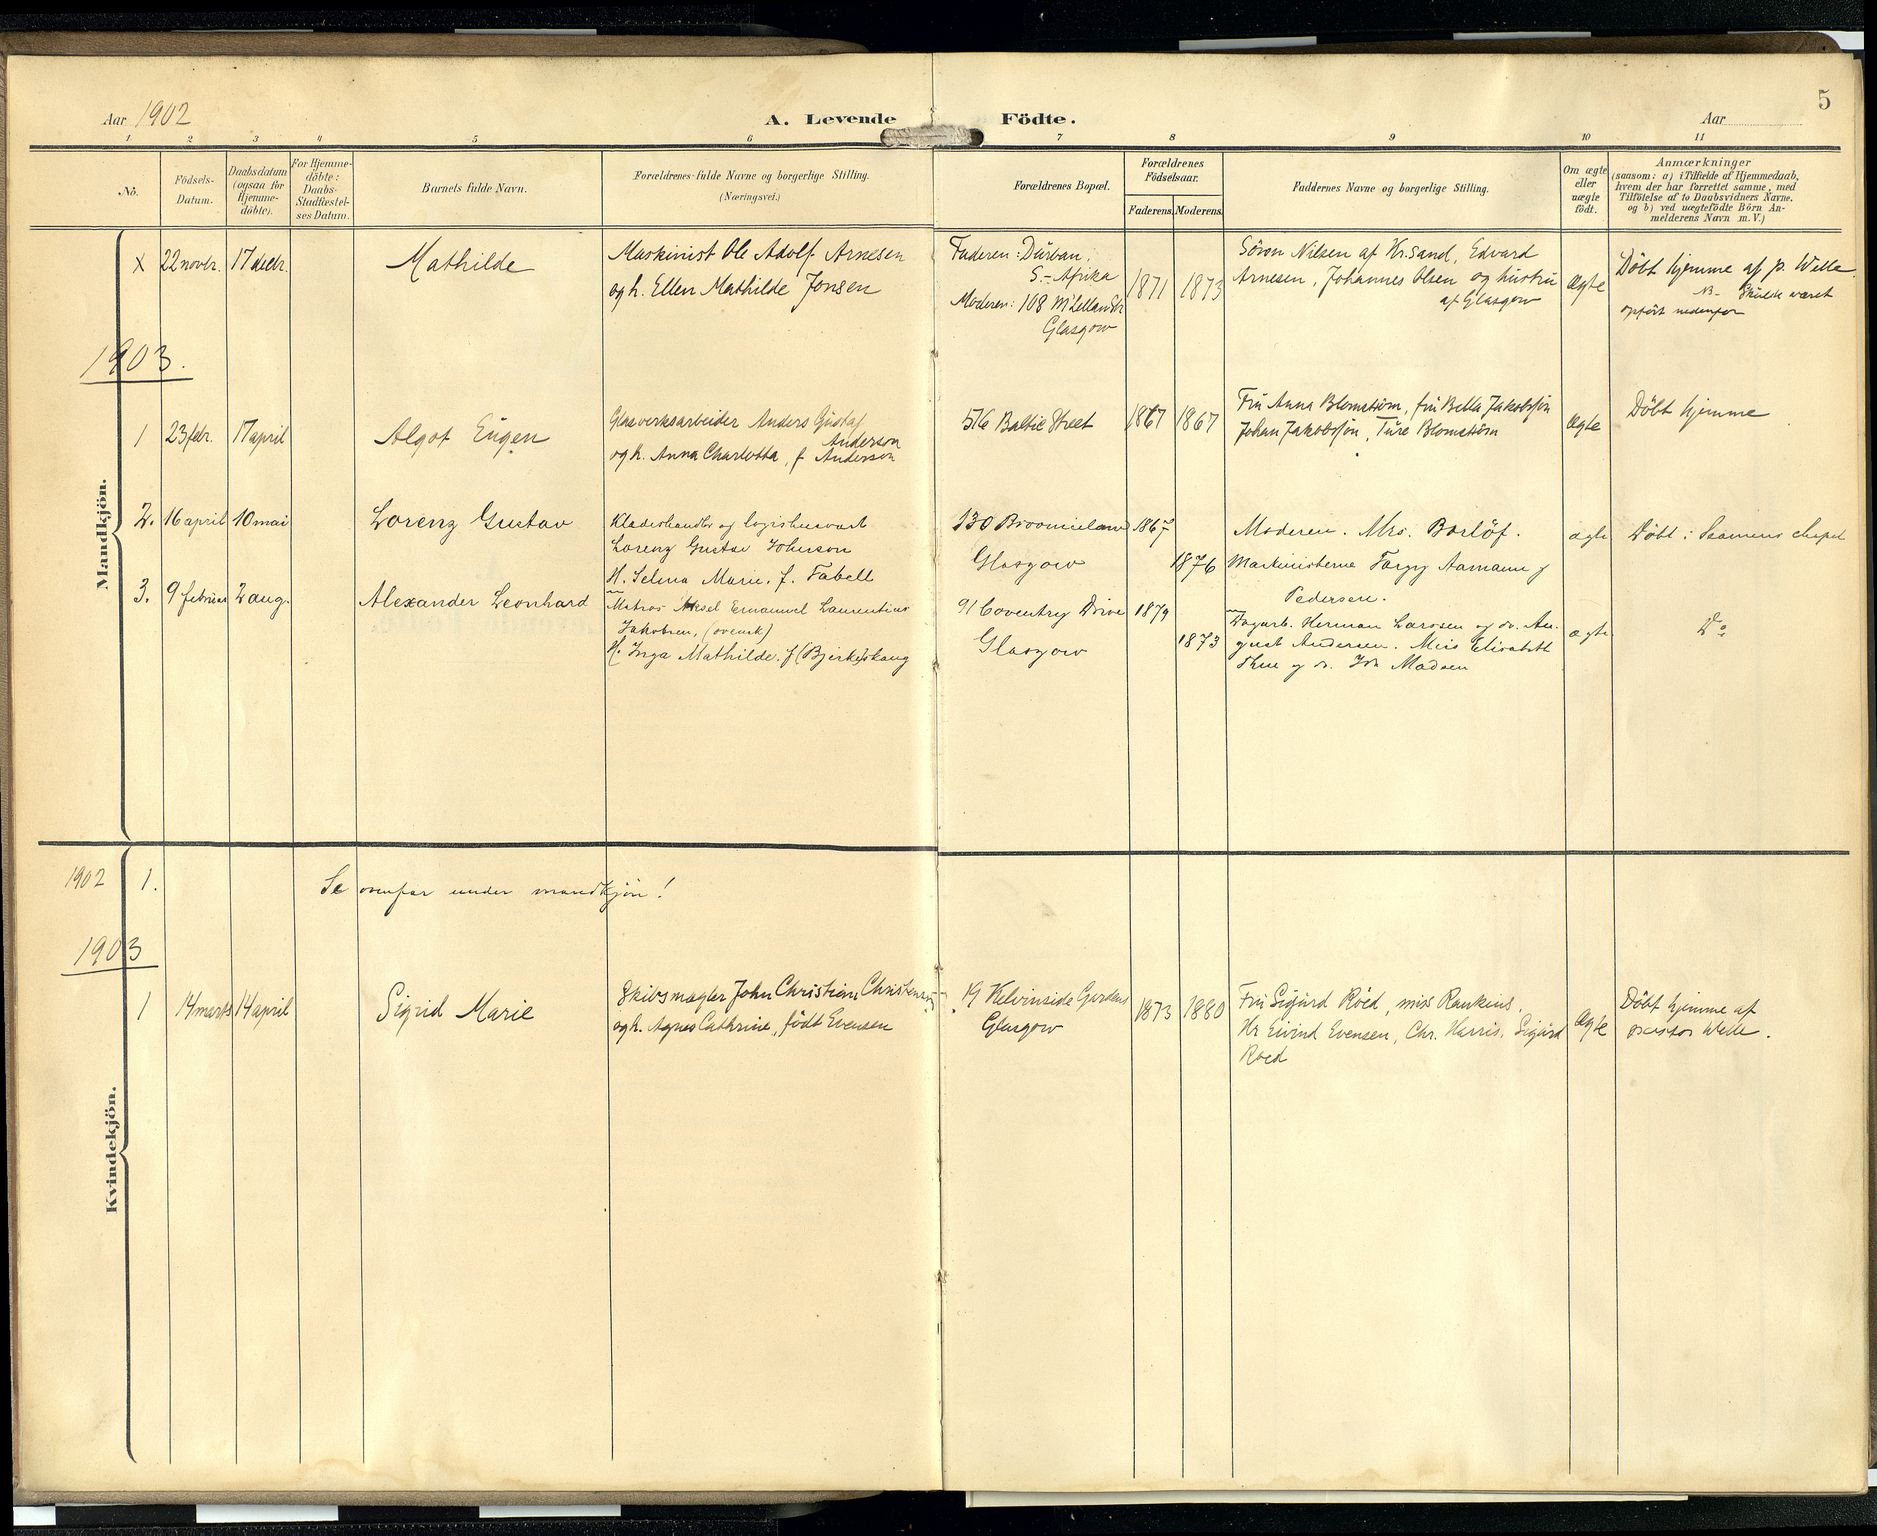 5
Aar 1902
A. Levende Födte.
Aar
1 2 3 4 5 6 7 8 9 10 11
No.
Födsels-
Datum.
Daabsdatum
(ogsaa for
Hjemme-
döbte).
For Hjemme-
döbte:
Daabs-
Stadfæstel-
ses Datum.
Barnets fulde Navn.
Forældrenes fulde Navne og borgerlige Stilling.
(Næringsvei.)
Forældrenes Bopæl.
Forældrenes
Födselsaar.
Faderens. Moderens.
Faddernes Navne og borgerlige Stilling.
Om ægte
eller
uægte
födt.
Anmærkninger
(saasom: a) i Tilfælde af Hjemmedaab,
hvem der har forrettet samme, med
Tilföielse af to Daabsvidners Navne.
og b) ved uægtefödte Börn An-
melderens Navn m. V.)
Mandkjön.
x 22 novbr. 17 decbr. Mathilde
Maskinist Ole Adolf Arnesen
og h. Ellen Mathilde Jonsen
Faderen: Durban,
S-Afrika
Moderen: 108 McLellan Str
Glasgow
1871 1873
Sören Nilsen af Kr.sand, Edvard
Arnesen, Johannes Olsen og hustru
af Glasgow
Ægte
Döbt hjemme af p. Welle.
NB- Skulde været
opfört nedenfor
1903.
1 23 febr. 17 april Algot Eugen
Glasverksarbeider Anders Gustaf
Anderson
og h. Anna Charlotta, f. Anderson
516 Baltic Street
1867 1867
Fru Anna Blomström, fru Bella Jakobsson
Johan Jakobsson, Ture Blomström
Ægte
Döbt hjemme
2. 16 april 10 mai Lorenz Gustav
Klædeshandler og logishusvært
Lorenz Gustav Johnson
H. Selma Marie, f. Fabell
130 Broomielaw
Glasgow
1867
1876
Moderen. Mrs. Borlöf.
Maskinisterne Aamann g
Pedersen.
ægte
Döbt i Seamens chapel
3. 9 februar 2 aug. Alexander Leonhard
Matros Aksel Emanuel Laurentius
Jakobsen, (svensk)
H. Inga Mathilde. f. (Bjerke)skaug
91 Coventry Drive
Glasgow
1879
1873
Dagarb. Herman Larssen og do. Au-
gust Andersen. Miss Elisabeth
Thue g do. Ida Madsen
ægte
Do
Kvindekjön.
1902 1. Se ovenfor under mandkjön!
1903
1 14 marts 14 april Sigrid Marie
Skibsmægler John Christian Christensen
og h. Agnes Cathrine, födt Evensen
19 Kelvinside Gardens
Glasgow
1873 1880
Fru Sigurd Röed, miss Rankine,
Hr Eivind Evensen, Chr. Harris, Sigurd
Roed
Ægte
Döbt hjemme af
pastor Welle.